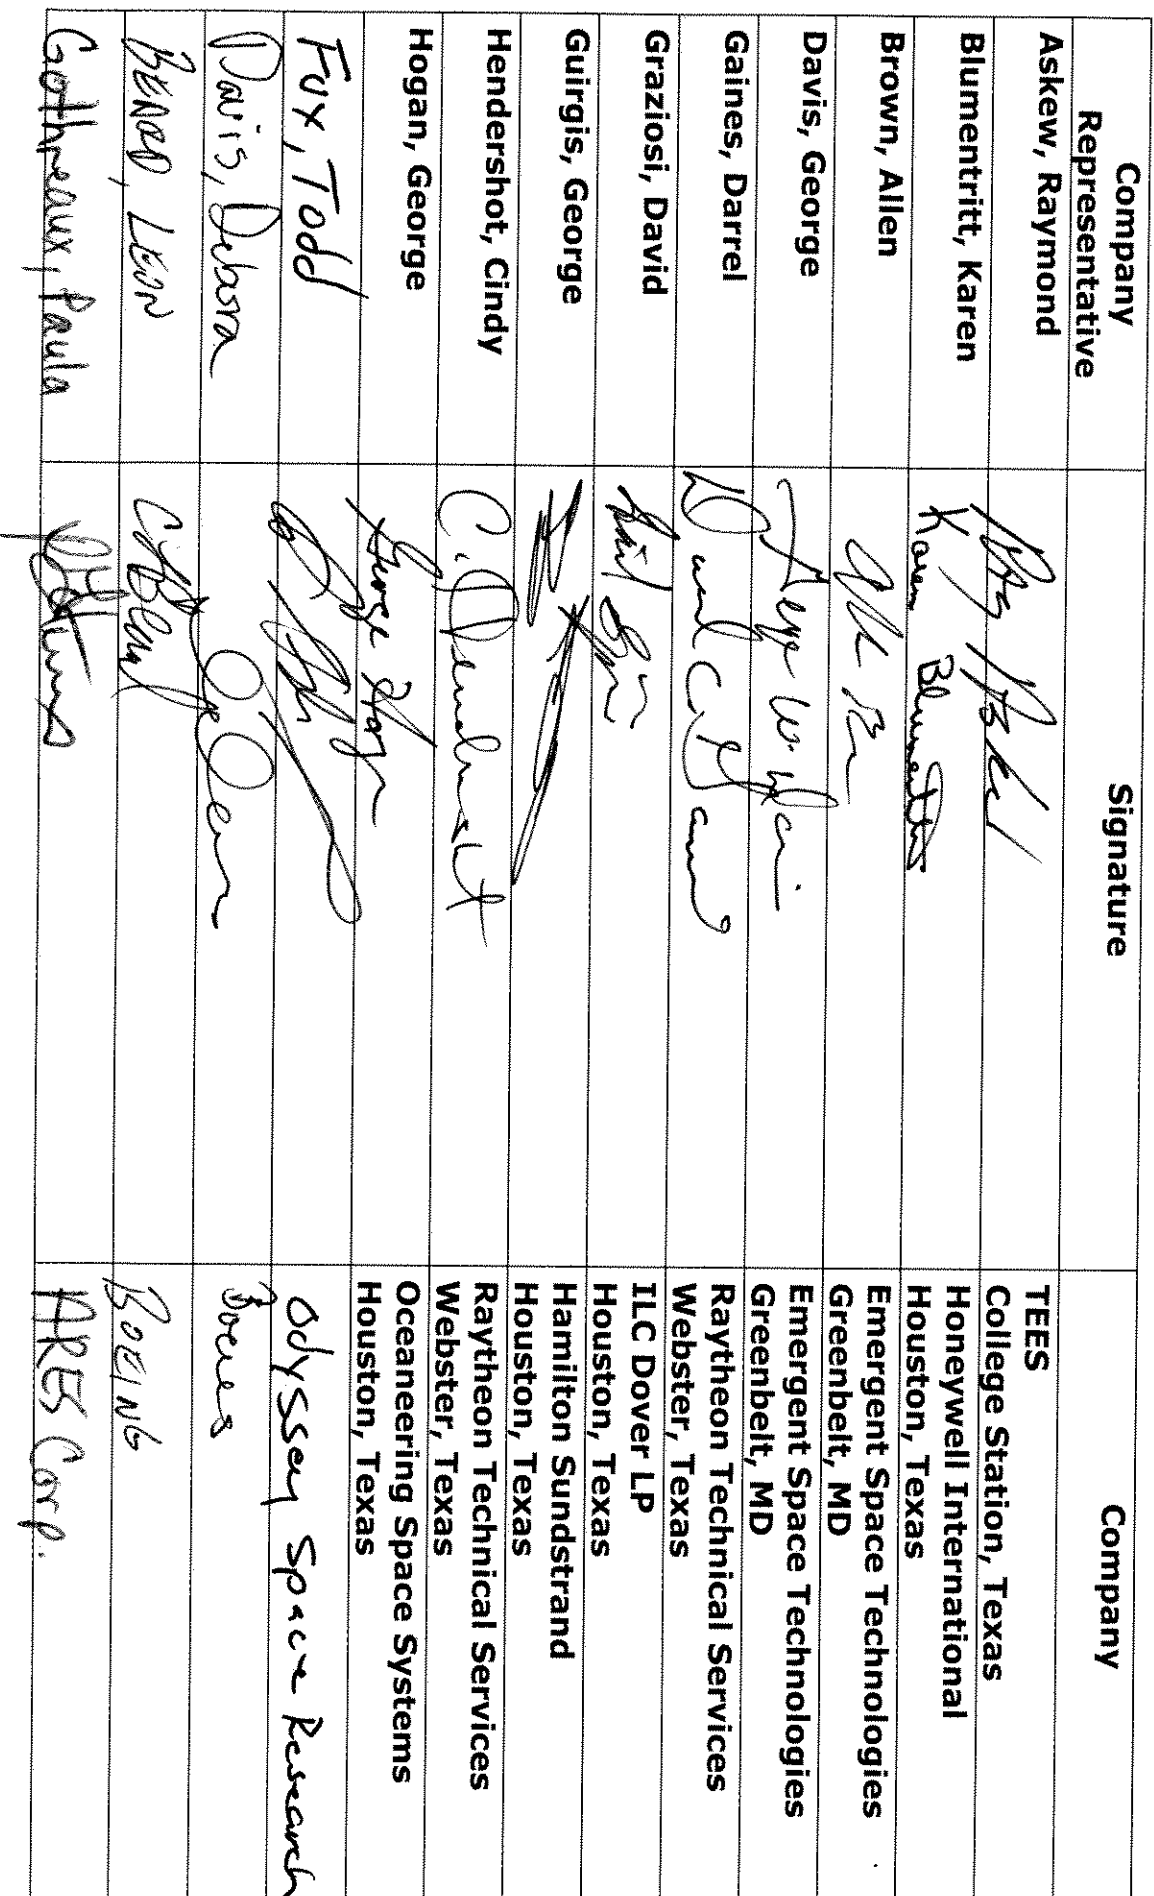 Company Representative Signature Company
Askew, Raymond TEES College Station, Texas
Blumentritt, Karen Karen Blumentritt Honeywell International Houston, Texas
Brown, Allen Emergent Space Technologies Greenbelt, MD
Davis, George Emergent Space Technologies Greenbelt, MD
Gaines, Darrel Raytheon Technical Services Webster, Texas
Graziosi, David ILC Dover LP Houston, Texas
Guirgis, George Hamilton Sundstrand Houston, Texas
Hendershot, Cindy Raytheon Technical Services Webster, Texas
Hogan, George George Hogan Oceaneering Space Systems Houston, Texas
Fox, Todd Odyssey Space Research
Davis, Debora
LEON BOEING
Paula ARES Corp.